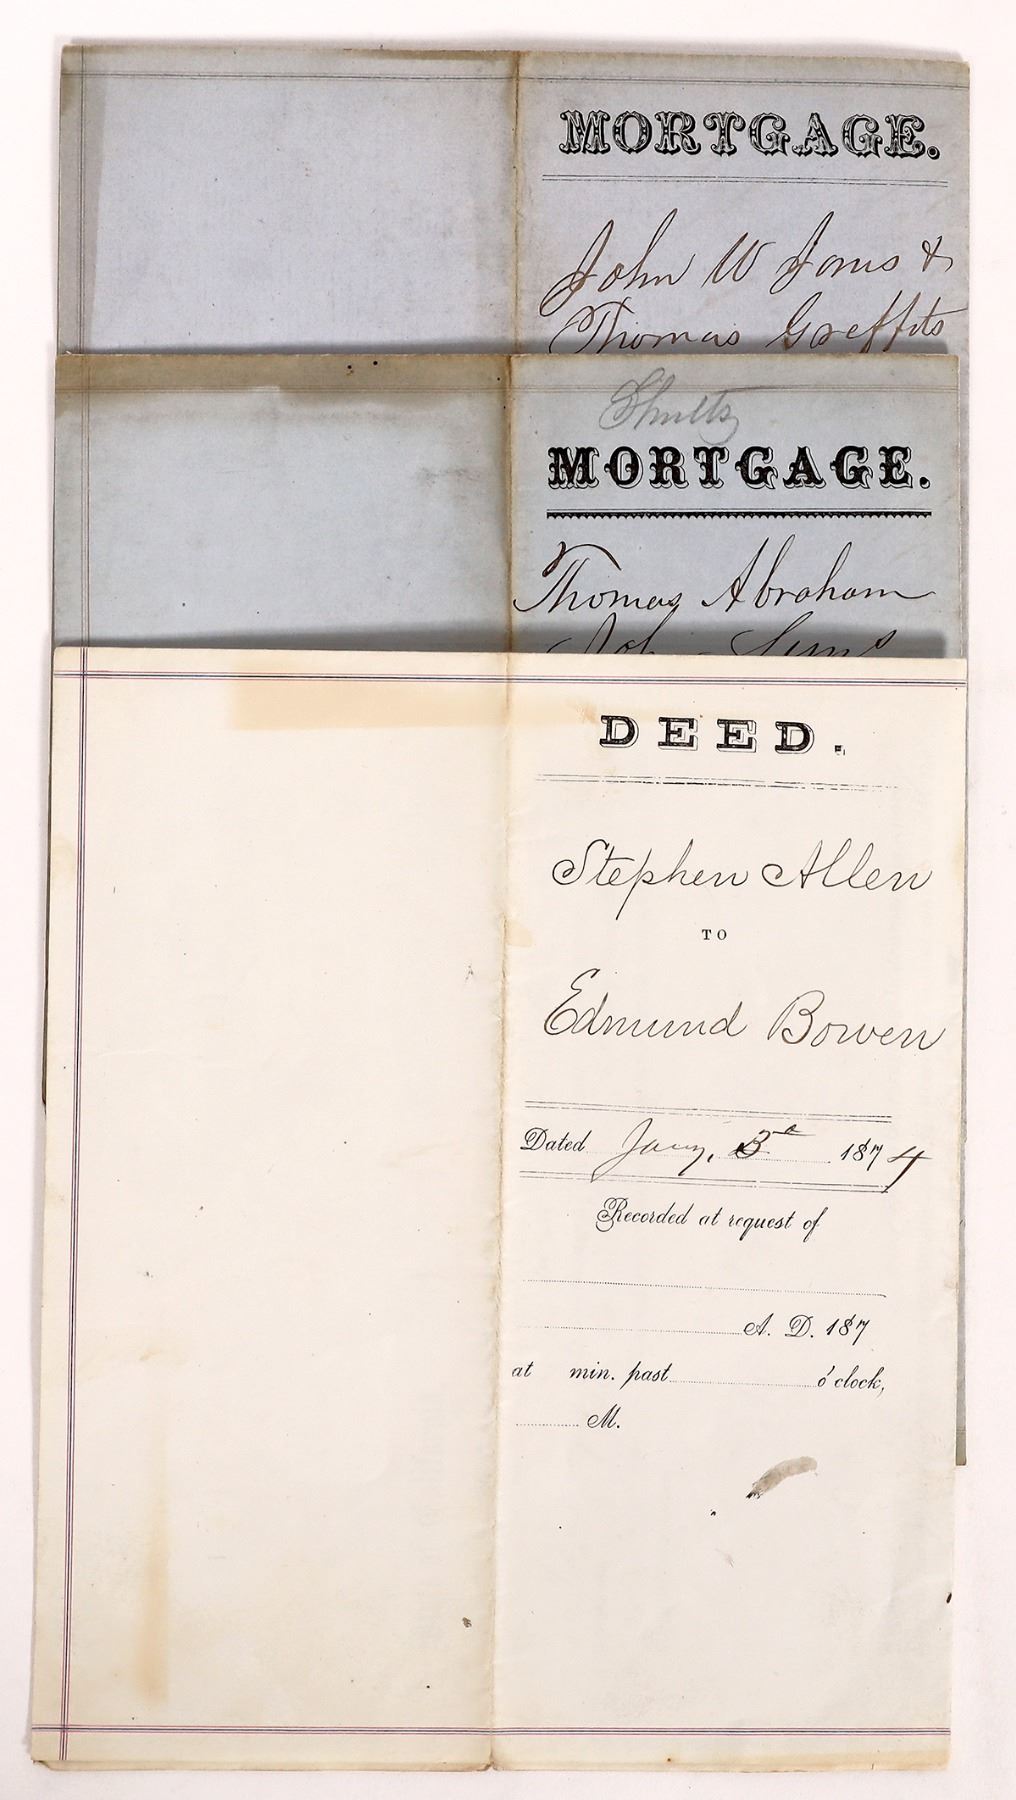 MORTGAGE.
John W Jones &
Thomas Greffits
Shultz
MORTGAGE.
Thomas Abraham
John Sims
DEED.
Stephen Allen
TO
Edmund Bowen
Dated Jany, 3d 1874
Recorded at request of
A. D. 187
at min. past o'clock,
M.